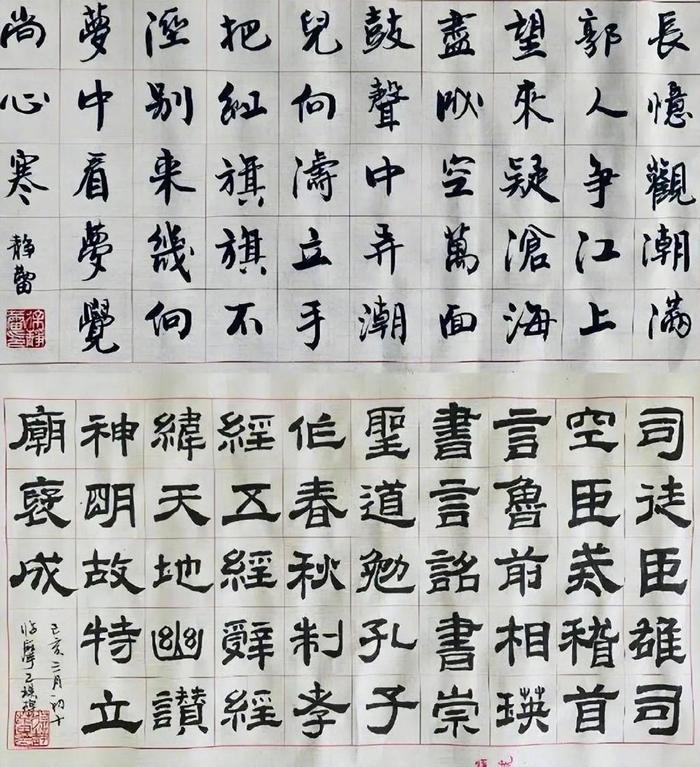 長憶觀潮滿
郭人争江上
望來疑滄海
盡成空萬面
鼓聲中弄潮
兒向濤立手
把紅旗旗不
溼别来幾向
夢中看夢覺
尚心寒
静蕾
司徒臣雄司
空臣戒稽首
言魯前相瑛
書言詔書崇
聖道勉孔子
作春秋制孝
經五經辭經
緯天地幽讚
神明故特立
廟褒成
己亥三月初十
临摩乙瑛碑